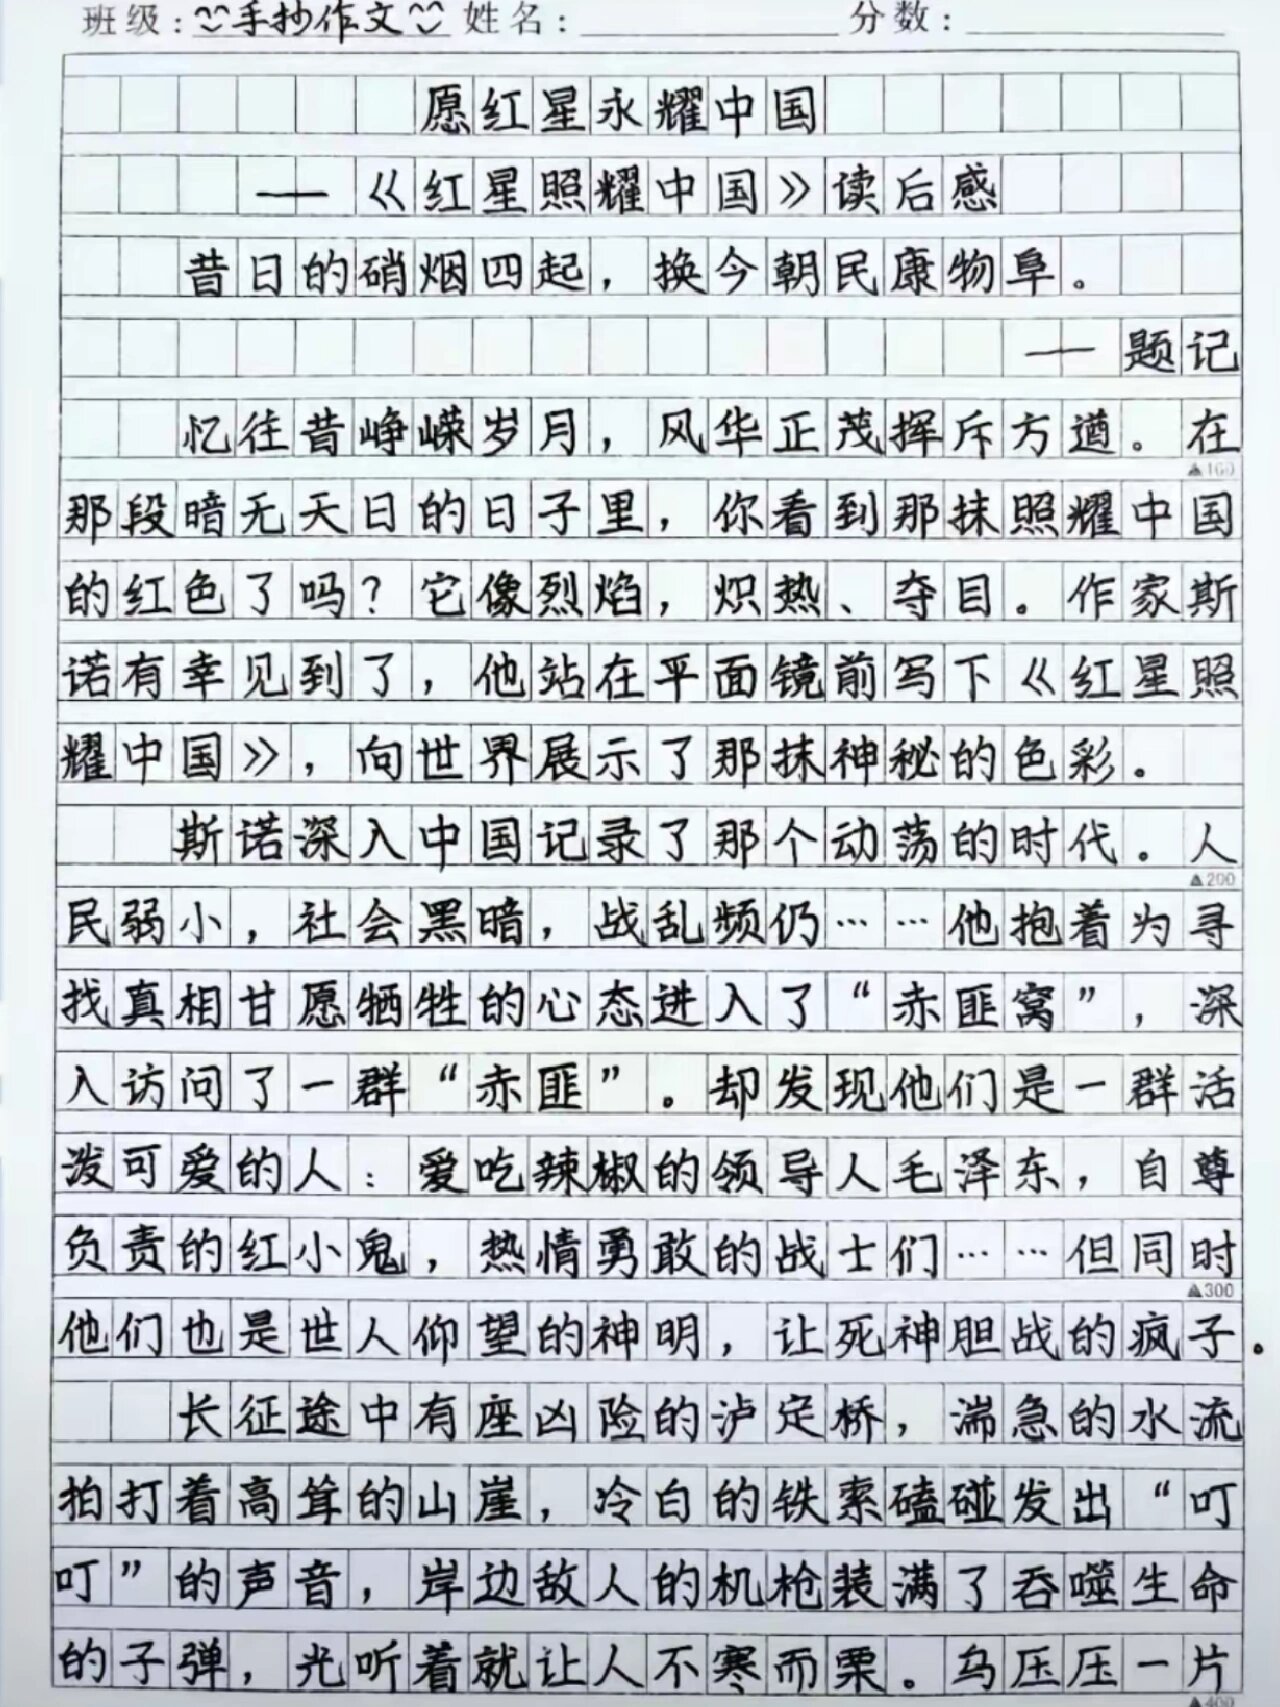 班级:手抄作文 姓名: 分数:
愿红星永耀中国
——《红星照耀中国》读后感
昔日的硝烟四起，换今朝民康物阜。
——题记
忆往昔峥嵘岁月，风华正茂挥斥方遒。在
▲100
那段暗无天日的日子里，你看到那抹照耀中国
的红色了吗？它像烈焰，炽热、夺目。作家斯
诺有幸见到了，他站在平面镜前写下《红星照
耀中国》，向世界展示了那抹神秘的色彩。
斯诺深入中国记录了那个动荡的时代。人
▲200
民弱小，社会黑暗，战乱频仍……他抱着为寻
找真相甘愿牺牲的心态进入了“赤匪窝”，深
入访问了一群“赤匪”。却发现他们是一群活
泼可爱的人：爱吃辣椒的领导人毛泽东，自尊
负责的红小鬼，热情勇敢的战士们……但同时
▲300
他们也是世人仰望的神明，让死神胆战的疯子。
长征途中有座凶险的泸定桥，湍急的水流
拍打着高耸的山崖，冷白的铁索磕碰发出“叮
叮”的声音，岸边敌人的机枪装满了吞噬生命
的子弹，光听着就让人不寒而栗。乌压压一片
▲400